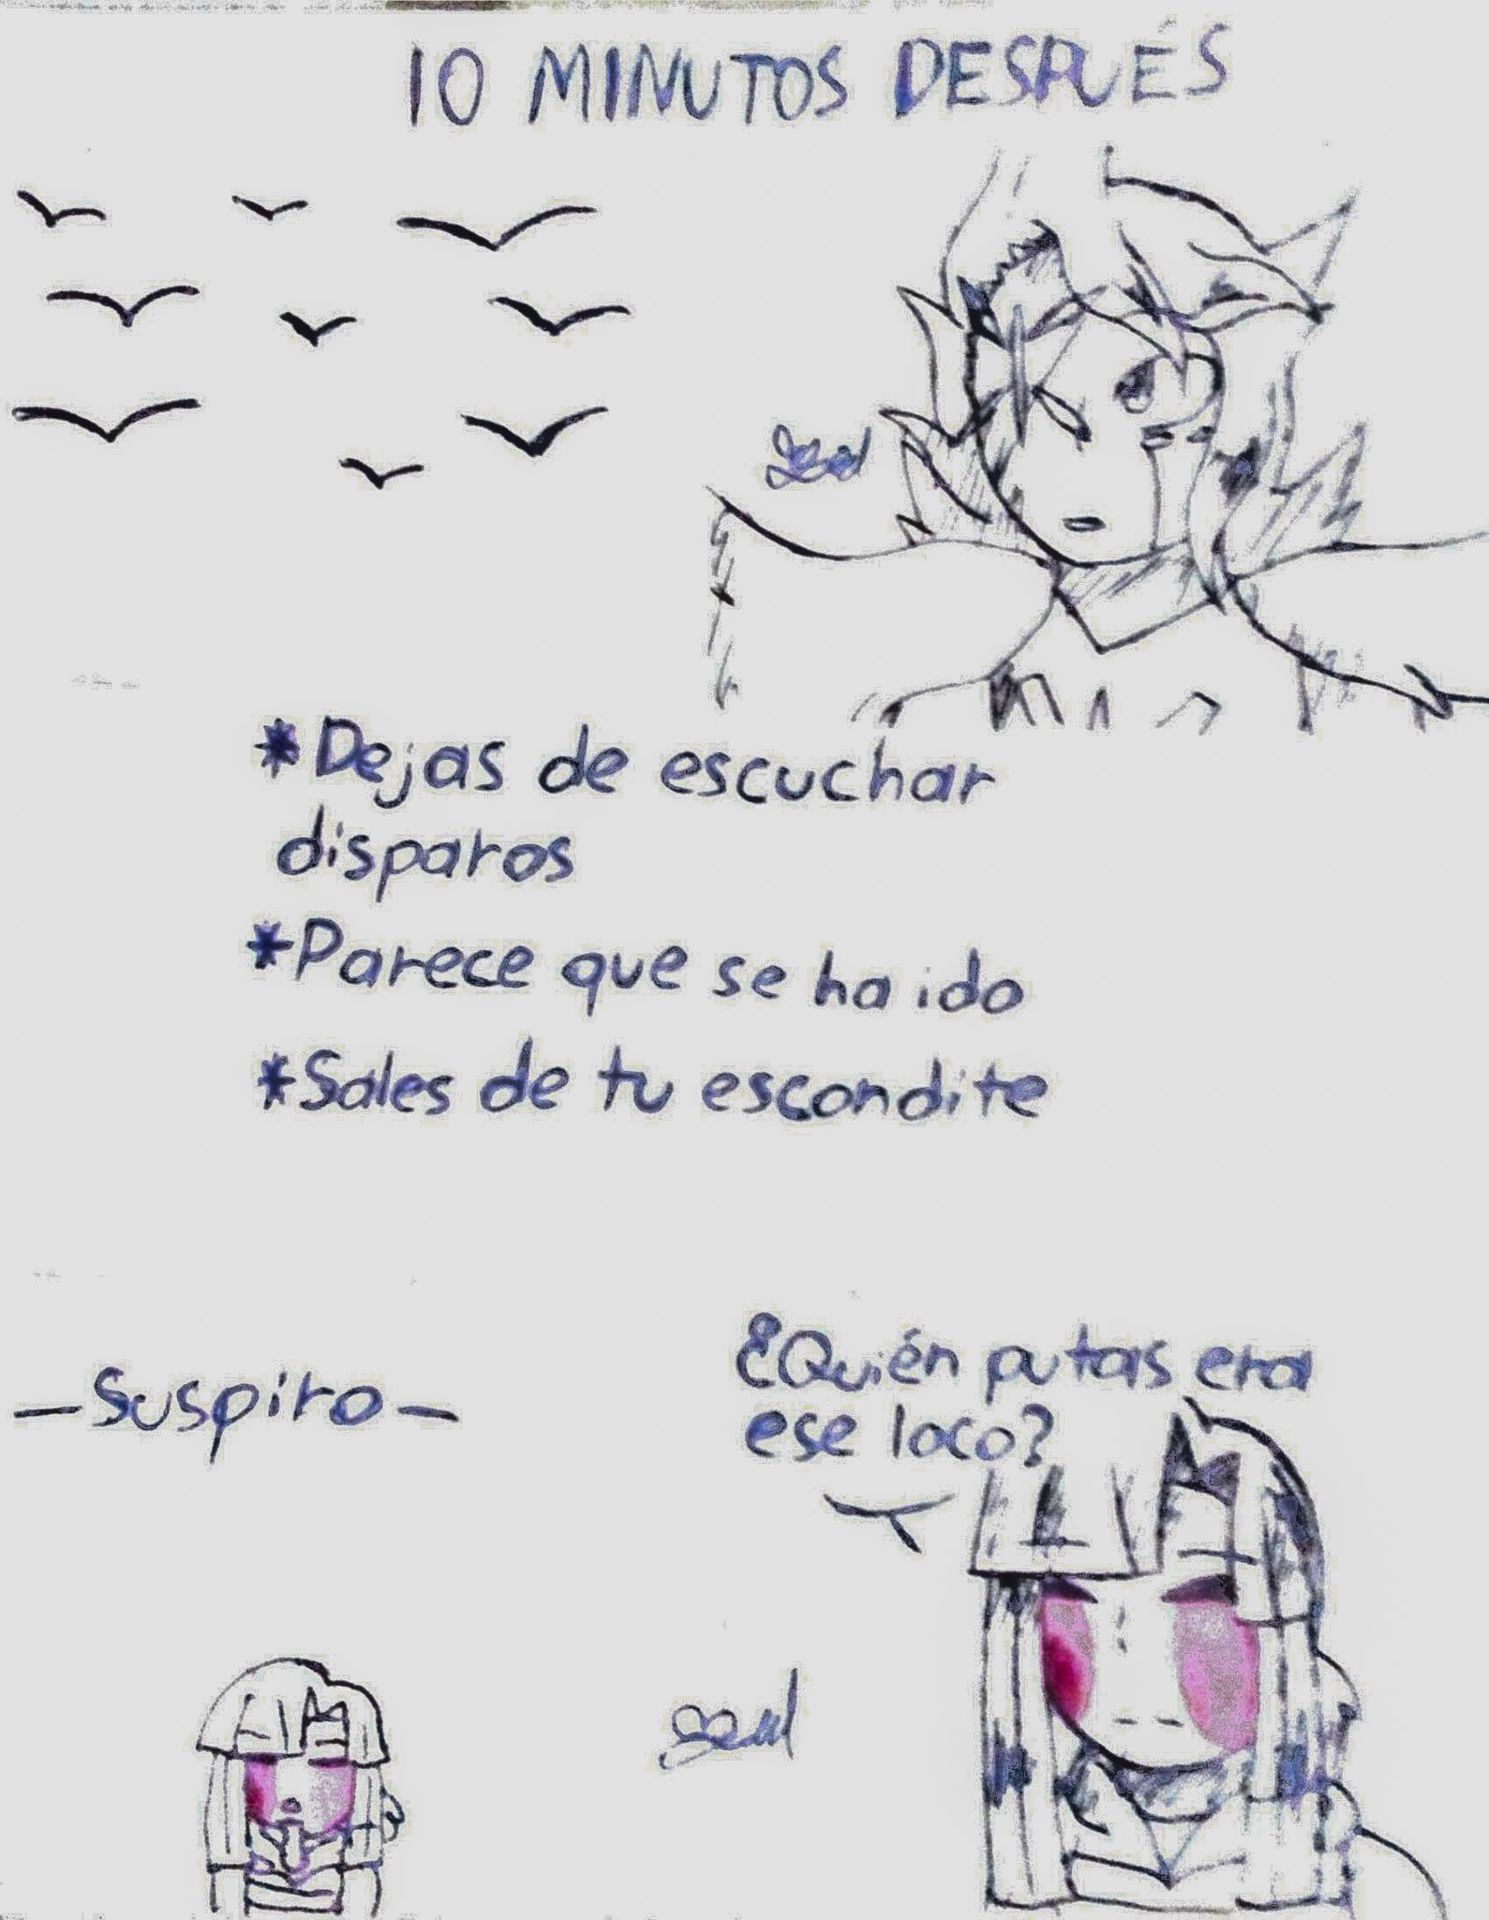 10 MINUTOS DESPUÉS
*Dejas de escuchar
disparos
*Parece que se ha ido
*Sales de tu escondite
—Suspiro—
¿Quién putas era
ese loco?